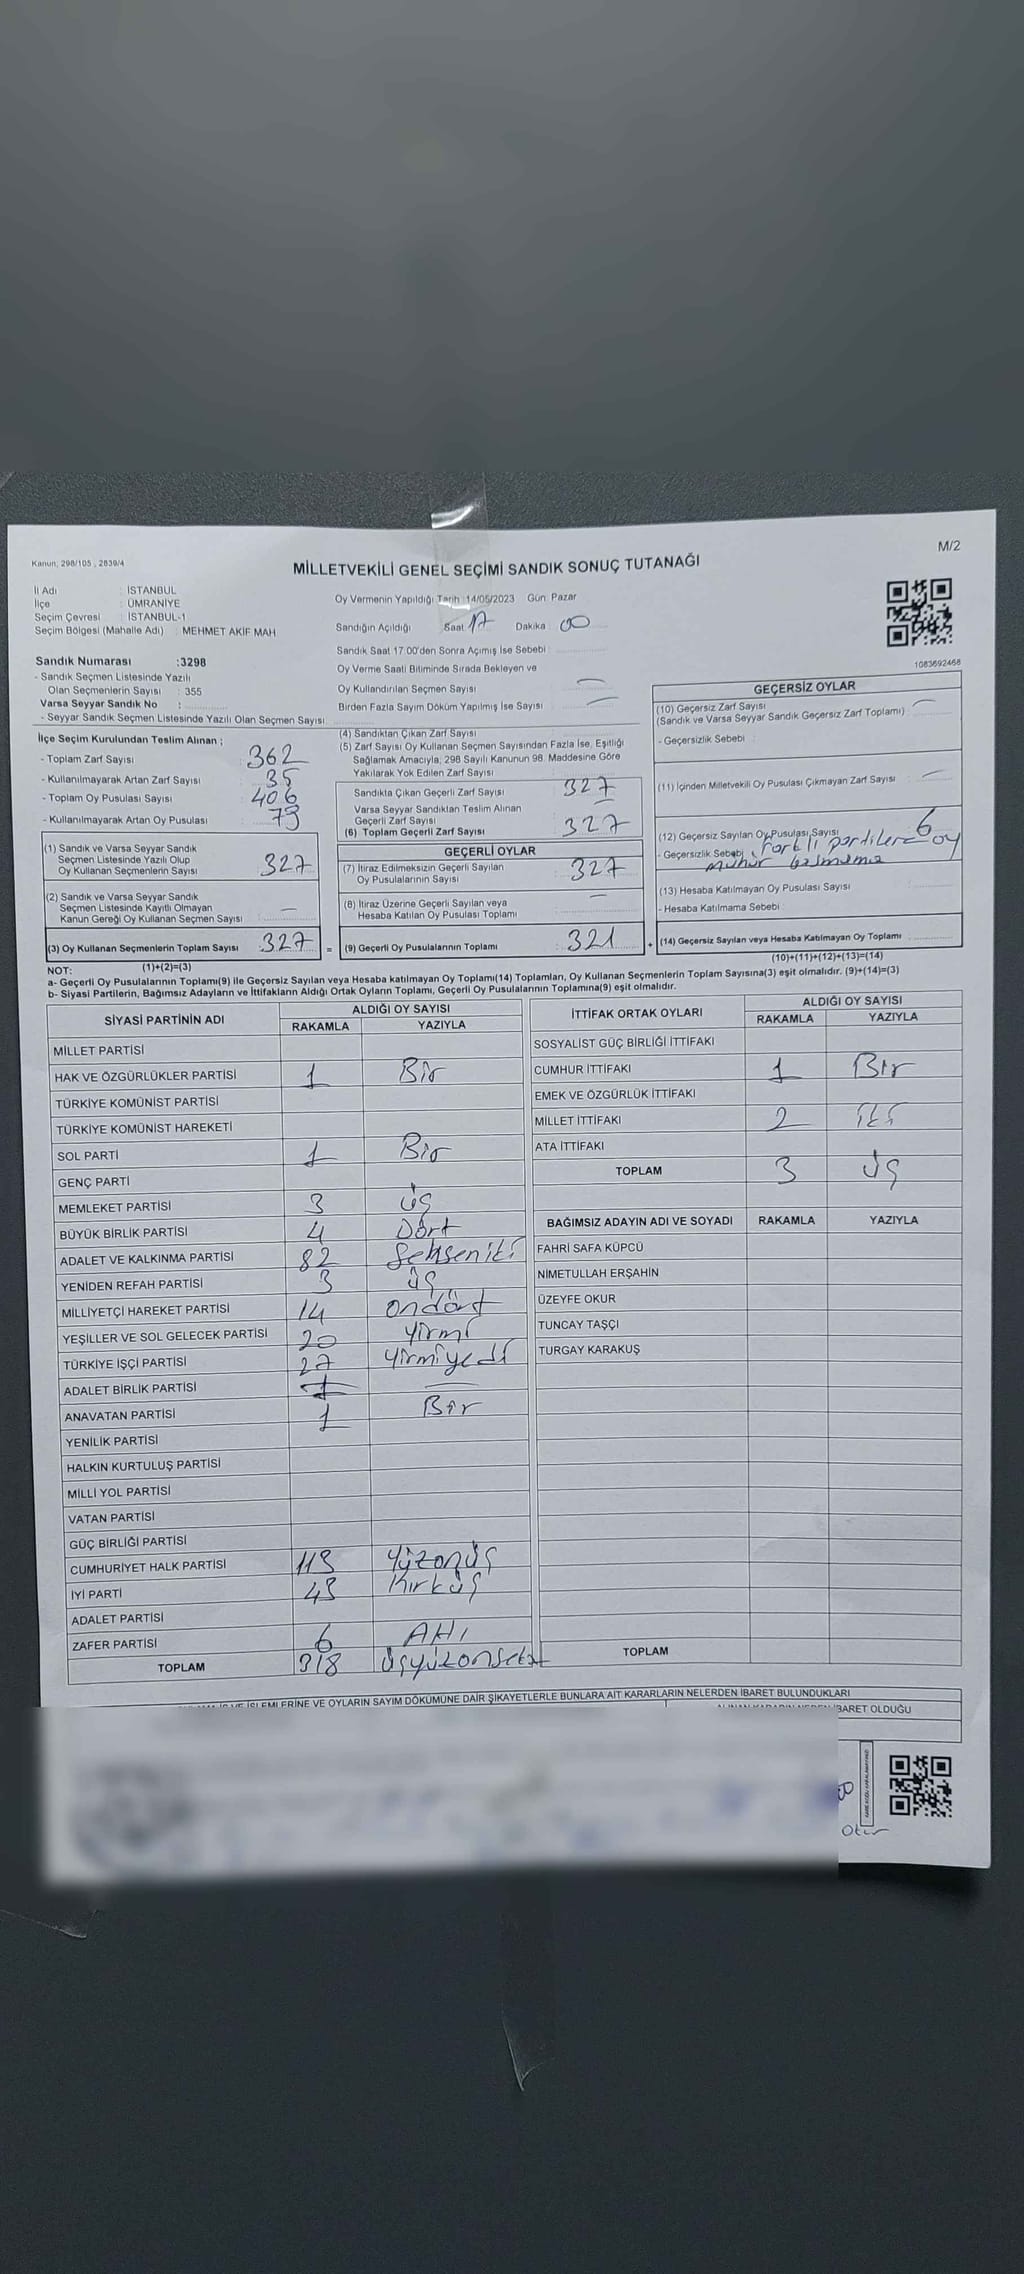 Kanun, 298/105 , 2839/4
M/2
MİLLETVEKİLİ GENEL SEÇİMİ SANDIK SONUÇ TUTANAĞI
İl Adı : İSTANBUL
İlçe : ÜMRANİYE
Seçim Çevresi : İSTANBUL-1
Seçim Bölgesi (Mahalle Adı) : MEHMET AKİF MAH
Sandık Numarası :3298
- Sandık Seçmen Listesinde Yazılı
Olan Seçmenlerin Sayısı : 355
Varsa Seyyar Sandık No :
- Seyyar Sandık Seçmen Listesinde Yazılı Olan Seçmen Sayısı
Oy Vermenin Yapıldığı Tarih :14/05/2023 Gün Pazar
Sandığın Açıldığı Saat 17 Dakika 00
Sandık Saat 17.00'den Sonra Açımış İse Sebebi
Oy Verme Saati Bitiminde Sırada Bekleyen ve
Oy Kullandırılan Seçmen Sayısı —
Birden Fazla Sayım Döküm Yapılmış İse Sayısı —
1083692468
İlçe Seçim Kurulundan Teslim Alınan ;
- Toplam Zarf Sayısı 362
- Kullanılmayarak Artan Zarf Sayısı 35
- Toplam Oy Pusulası Sayısı 406
- Kullanılmayarak Artan Oy Pusulası 79
(1) Sandık ve Varsa Seyyar Sandık
Seçmen Listesinde Yazılı Olup
Oy Kullanan Seçmenlerin Sayısı 327
(2) Sandık ve Varsa Seyyar Sandık
Seçmen Listesinde Kayıtlı Olmayan
Kanun Gereği Oy Kullanan Seçmen Sayısı —
(3) Oy Kullanan Seçmenlerin Toplam Sayısı 327 =
(1)+(2)=(3)
(4) Sandıktan Çıkan Zarf Sayısı
(5) Zarf Sayısı Oy Kullanan Seçmen Sayısından Fazla İse, Eşitliği
Sağlamak Amacıyla, 298 Sayılı Kanunun 98. Maddesine Göre
Yakılarak Yok Edilen Zarf Sayısı
Sandıkta Çıkan Geçerli Zarf Sayısı 327
Varsa Seyyar Sandıktan Teslim Alınan
Geçerli Zarf Sayısı —
(6) Toplam Geçerli Zarf Sayısı 327
GEÇERLİ OYLAR
(7) İtiraz Edilmeksizin Geçerli Sayılan
Oy Pusulalarının Sayısı 327
(8) İtiraz Üzerine Geçerli Sayılan veya
Hesaba Katılan Oy Pusulası Toplamı —
(9) Geçerli Oy Pusulalarının Toplamı 321 +
GEÇERSİZ OYLAR
(10) Geçersiz Zarf Sayısı —
(Sandık ve Varsa Seyyar Sandık Geçersiz Zarf Toplamı)
- Geçersizlik Sebebi
(11) İçinden Milletvekili Oy Pusulası Çıkmayan Zarf Sayısı —
(12) Geçersiz Sayılan Oy Pusulası Sayısı 6
- Geçersizlik Sebebi farklı partilere oy
mühür basmama
(13) Hesaba Katılmayan Oy Pusulası Sayısı
- Hesaba Katılmama Sebebi
(14) Geçersiz Sayılan veya Hesaba Katılmayan Oy Toplamı
(10)+(11)+(12)+(13)=(14)
NOT:
a- Geçerli Oy Pusulalarının Toplamı(9) ile Geçersiz Sayılan veya Hesaba katılmayan Oy Toplamı(14) Toplamları, Oy Kullanan Seçmenlerin Toplam Sayısına(3) eşit olmalıdır. (9)+(14)=(3)
b- Siyasi Partilerin, Bağımsız Adayların ve İttifakların Aldığı Ortak Oyların Toplamı, Geçerli Oy Pusulalarının Toplamına(9) eşit olmalıdır.
SİYASİ PARTİNİN ADI ALDIĞI OY SAYISI
RAKAMLA YAZIYLA
MİLLET PARTİSİ
HAK VE ÖZGÜRLÜKLER PARTİSİ 1 Bir
TÜRKİYE KOMÜNİST PARTİSİ
TÜRKİYE KOMÜNİST HAREKETİ
SOL PARTİ 1 Bir
GENÇ PARTİ
MEMLEKET PARTİSİ 3 üç
BÜYÜK BİRLİK PARTİSİ 4 Dört
ADALET VE KALKINMA PARTİSİ 82 Seksen iki
YENİDEN REFAH PARTİSİ 3 üç
MİLLİYETÇİ HAREKET PARTİSİ 14 ondört
YEŞİLLER VE SOL GELECEK PARTİSİ 20 yirmi
TÜRKİYE İŞÇİ PARTİSİ 27 yirmiyedi
ADALET BİRLİK PARTİSİ 1 —
ANAVATAN PARTİSİ 1 Bir
YENİLİK PARTİSİ
HALKIN KURTULUŞ PARTİSİ
MİLLİ YOL PARTİSİ
VATAN PARTİSİ
GÜÇ BİRLİĞİ PARTİSİ
CUMHURİYET HALK PARTİSİ 113 Yüzonüç
İYİ PARTİ 43 Kırküç
ADALET PARTİSİ
ZAFER PARTİSİ 6 Altı
TOPLAM 318 Üçyüzonsekiz
İTTİFAK ORTAK OYLARI ALDIĞI OY SAYISI
RAKAMLA YAZIYLA
SOSYALİST GÜÇ BİRLİĞİ İTTİFAKI
CUMHUR İTTİFAKI 1 Bir
EMEK VE ÖZGÜRLÜK İTTİFAKI
MİLLET İTTİFAKI 2 iki
ATA İTTİFAKI
TOPLAM 3 üç
BAĞIMSIZ ADAYIN ADI VE SOYADI RAKAMLA YAZIYLA
FAHRİ SAFA KÜPCÜ
NİMETULLAH ERŞAHİN
ÜZEYFE OKUR
TUNCAY TAŞÇI
TURGAY KARAKUŞ
TOPLAM
İŞLEMLERİNE VE OYLARIN SAYIM DÖKÜMÜNE DAİR ŞİKAYETLERLE BUNLARA AİT KARARLARIN NELERDEN İBARET BULUNDUKLARI
İBARET OLDUĞU